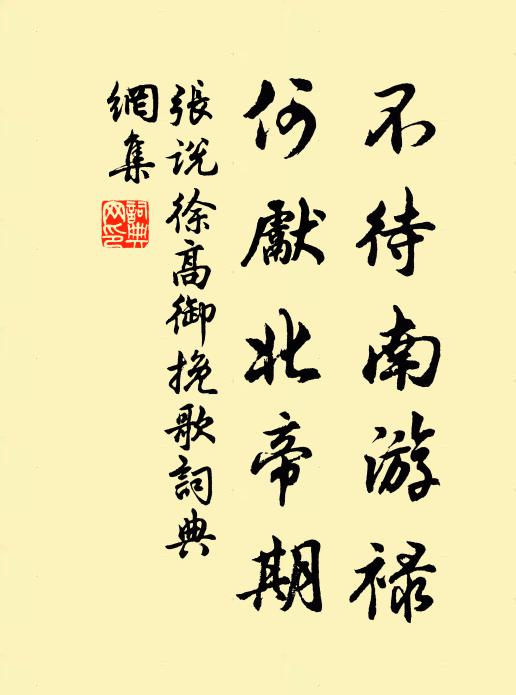 不待南游禄
何獻北帝期
張說徐高御挽歌詞典
網集
詞典網印